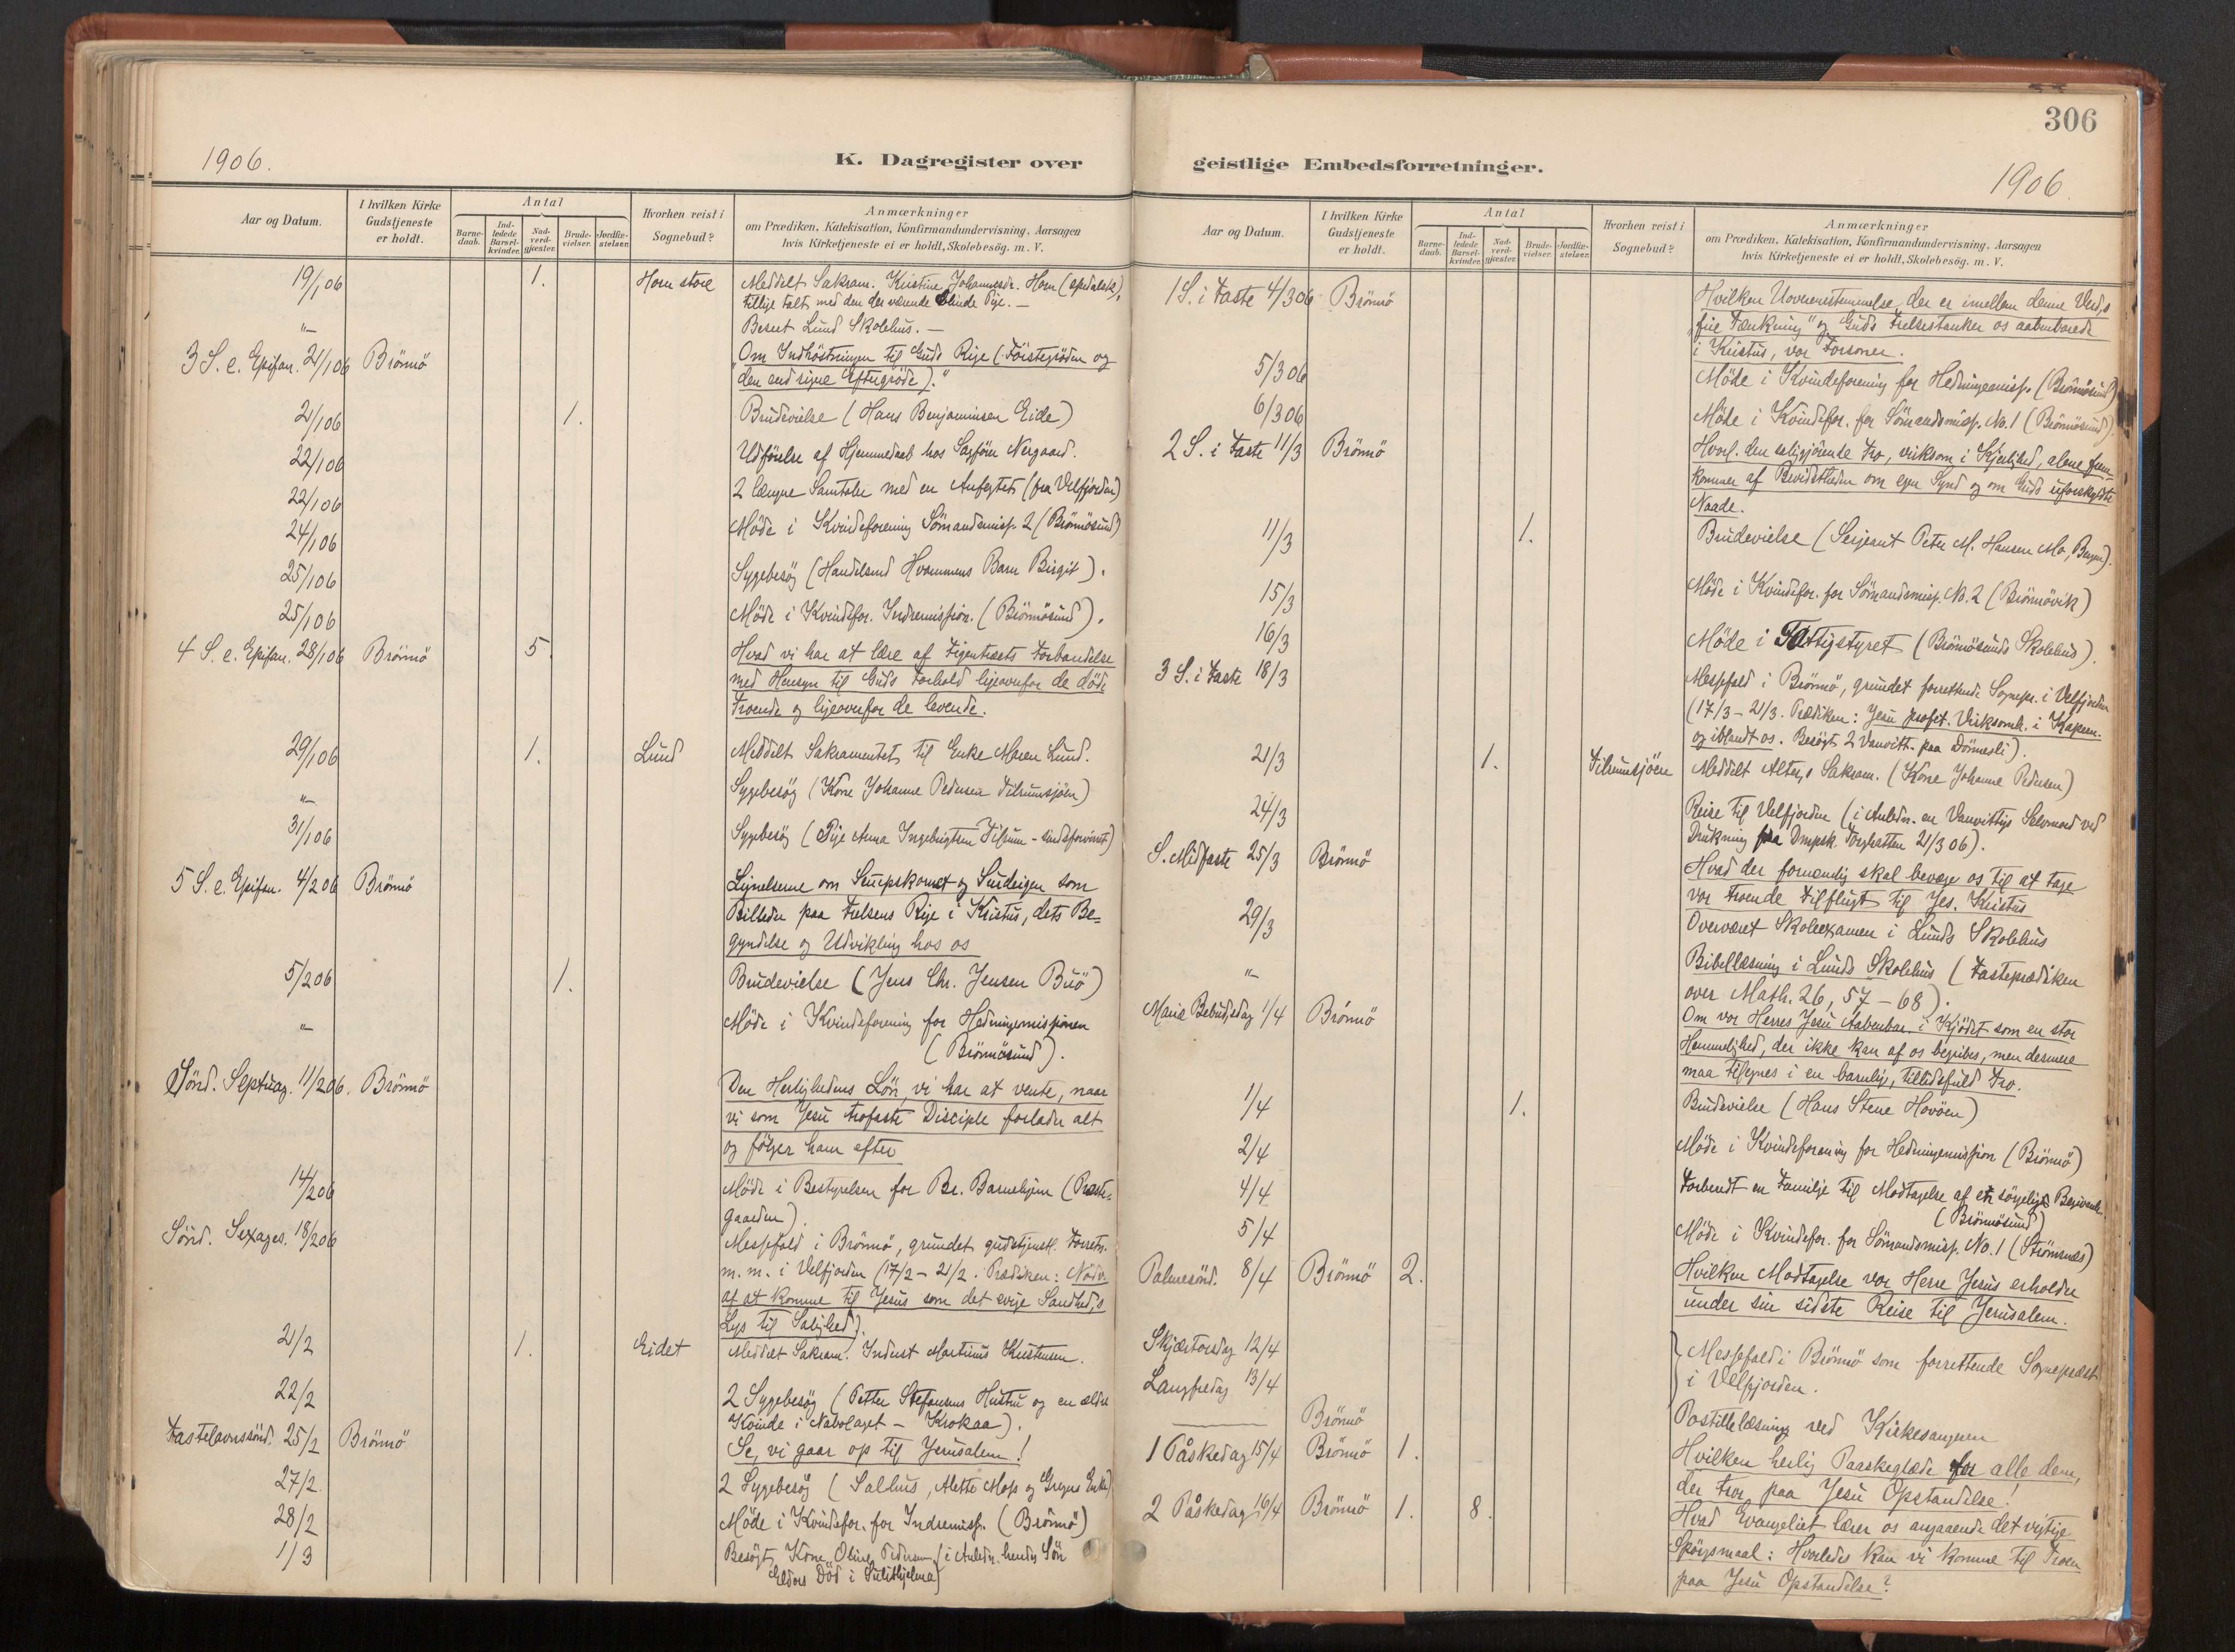 306
1906.
K. Dagregister over
geistlige Embedsforretninger.
1906.
Aar og Datum.
I hvilken Kirke Gudstjeneste er holdt.
Antal
Barne-daab.
Ind-ledede Barsel-kvinder.
Nad-verd-gjæster.
Brude-vielser.
Jordfæ-stelser.
Hvorhen reist i Sognebud?
Anmærkninger
om Prædiken, Katekisation, Konfirmandundervisning, Aarsagen
hvis Kirketjeneste ei er holdt, Skolebesög. m. V.
19/1 06 1. Horn store Meddelt Sakram. Kristine Johannesdr. Horn (spedalsk),
tillige talt med den der værende blinde Pige. —
" Besøgt Lund Skolehus. —
3 S. e. Epifan. 21/1 06 Brönnö Om Indhöstningen til Guds Rige (Förstegröden og
"den end rigere Eftergröde)."
21/1 06 1. Brudevielse (Hans Benjaminsen Eide)
22/1 06 Udförelse af Hjemmedaab hos Sagförer Nergaard.
22/1 06 2 længre Samtaler med en Anfegtet (fra Velfjorden)
24/1 06 Möde i Kvindeforening Sömandsmiss. 2 (Brönnösund)
25/1 06 Sygebesög (Handelsmd Hvammens Barn Birgit).
25/1 06 Möde i Kvindefor. Indremission. (Brönnösund).
4 S. e. Epifan. 28/1 06 Brönnö 5. Hvad vi har at lære af Figentræets Forbandelse
med Hensyn til Guds Forhold ligeoverfor de döde
Troende og ligeoverfor de levende.
29/1 06 1. Lund Meddelt Sakramentet til Enke Maren Lund.
" Sygebesög (Kone Johanne Pedersen Tilrumsjöen)
31/1 06 Sygebesög (Pige Anna Ingebrigtsen Tilrum - sindsforvirret)
5 S. e. Epifan. 4/2 06 Brönnö Lignelserne om Sennepskornet og Surdeigen som
Billeder paa Frelsens Rige i Kristus, dets Be=
gyndelse og Udvikling hos os
5/2 06 1. Brudevielse (Jens Chr. Jensen Buö)
" Möde i Kvindeforening for Hedningemissionen
(Brönnösund).
Sönd. Septuag. 11/2 06. Brönnö Den Herlighedens Lön, vi har at vente, naar
vi som Jesu trofaste Disciple forlader alt
og fölger ham efter
14/2 06 Möde i Bestyrelsen for Br. Barnehjem (Præste-
gaarden).
Sönd. Sexages. 18/2 06 Messefald i Brönnö, grundet gudstjenstl. Forretn.
m. m. i Velfjorden (17/2 - 21/2. Prædiken: Nödv.
af at komme til Jesus som det evige Sandhed,s
Lys til Salighed).
21/2 1. Eidet Meddelt Sakram. Inderst Martinus Kristensen.
22/2 2 Sygebesög (Petter Stefansens Hustru og en ældre
Kvinde i Nabolaget - Krokaa).
Fastelavnssönd. 25/2 Brönnö Se, vi gaar op til Jerusalem!
27/2. 2 Sygebesög (Salhus, Alette Moss og Gregus Enke)
28/2 Möde i Kvindefor. for Indremiss. (Brönnö)
1/3 Besögt Kone Oline Pedersen (i Anledn. hendes Sön
Eldors Död i Sulithjelma)
Aar og Datum.
I hvilken Kirke Gudstjeneste er holdt.
Antal
Barne-daab.
Ind-ledede Barsel-kvinder.
Nad-verd-gjæster.
Brude-vielser.
Jordfæ-stelser.
Hvorhen reist i Sognebud?
Anmærkninger
om Prædiken, Katekisation, Konfirmandundervisning, Aarsagen
hvis Kirketjeneste ei er holdt, Skolebesög. m. V.
1 S. i Faste 4/3 06 Brönnö Hvilken Uoverensstemmelse der er imellem denne Verd,s
"frie Tænkning" og Guds Frelsestanker os aabenbarede
i Kristus, vor Forsoner.
5/3 06 Möde i Kvindeforening for Hedningemiss. (Brönnösund)
6/3 06 Möde i Kvindefor. for Sömandsmiss. No. 1 (Brönnösund)
2 S. i Faste 11/3 Brönnö Hvorl. den saliggjörende Tro, virksom i Kjærlighed, alene frem-
kommer af Bevidstheden om egen Synd og om Guds uforskyldte
Naade.
11/3 1. Brudevielse (Serjeant Peter M. Hansen Mo, Bergen).
15/3 Möde i Kvindefor. for Sömandsmiss. No. 2 (Brönnövik)
16/3 Möde i Fattigstyret (Brönnösunds Skolehus).
3 S. i Faste 18/3 Messefald i Brönnö, grundet forrettende Sognepr. i Velfjorden
(17/3 - 21/3. Prædiken: Jesu profet. Virksomh. i Kapern.
og iblandt os. Besögt 2 Vanvitt. paa Dönnesli).
21/3 1. Tilrumsjöen Meddelt Alter,s Sakram. (Kone Johanne Pedersen)
24/3 Reise til Velfjorden (i Anledn. en Vanvittigs Selvmord ved
Drukning fra Dmpsk. Torghatten 21/3 06).
S. Midfaste 25/3 Brönnö Hvad der fornemlig skal bevæge os til at tage
vor troende Tilflugt til Jes. Kristus
29/3 Overværet Skoleexamen i Lunds Skolehus
" Bibellæsning i Lunds Skolehus (Fasteprædiken
over Math. 26, 57 - 68).
Mariæ Bebud,sdag 1/4 Brönnö Om vor Herres Jesu Aabenbar. i Kjödet som en stor
Hemmelighed, der ikke kan af os begribes, men derimod
maa tilegnes i en barnlig, tillidsfuld Tro.
1/4 1. Brudevielse (Hans Stene Havöen)
2/4 Möde i Kvindeforening for Hedningemission (Brönnö)
4/4 Forberedt en Familje til Modtagelse af en sörgelig Begivenh.
(Brönnösund)
5/4 Möde i Kvindefor. for Sömandsmiss. No. 1 (Strömsnes)
Palmesönd. 8/4 Brönnö 2. Hvilken Modtagelse vor Herre Jesus erholder
under sin sidste Reise til Jerusalem.
Skjærtorsdag 12/4 Messefald i Brönnö som forrettende Sognepræst
Langfredag 13/4 i Velfjorden.
Brönnö Postillelæsning ved Kirkesangeren
1 Påskedag 15/4 Brönnö 1. Hvilken herlig Paaskeglæde for alle dem,
der tror paa Jesu Opstandelse!
2 Påskedag 16/4 Brönnö 1. 8. Hvad Evangeliet lærer os angaaende det vigtige
Spörgsmaal: Hvorledes kan vi komme til Troen
paa Jesu Opstandelse?